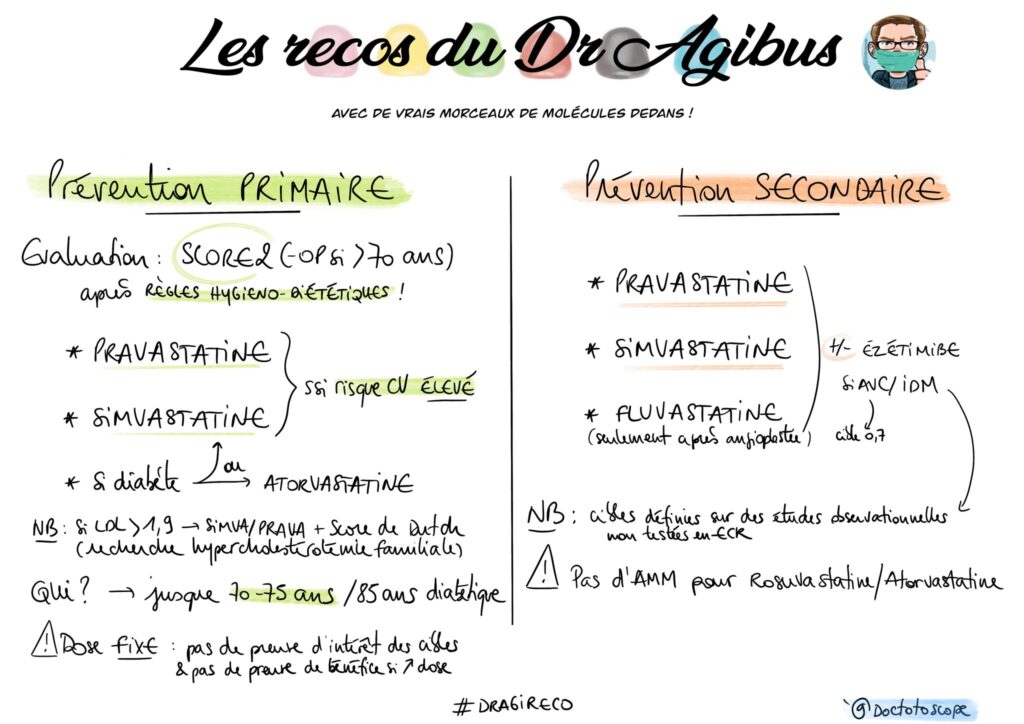 Les recos du Dr Agibus
AVEC DE VRAIS MORCEAUX DE MOLÉCULES DEDANS !
Prévention PRIMAIRE
Evaluation : SCORE2 (-OP si > 70 ans)
après RÈGLES HYGIENO-DIÉTÉTIQUES !
* PRAVASTATINE
* SIMVASTATINE
ssi risque CV ÉLEVÉ
ou
* Si diabète → ATORVASTATINE
NB : si LDL > 1,9 → SIMVA/PRAVA + Score de Dutch
(recherche hypercholestérolémie familiale)
Qui ? → jusque 70-75 ans / 85 ans diabétique
⚠ Dose fixe : pas de preuve d'intérêt des cibles
& pas de preuve de bénéfice si ↗ dose
Prévention SECONDAIRE
* PRAVASTATINE
* SIMVASTATINE
* FLUVASTATINE
(seulement après angioplastie)
+/- ÉZÉTIMIBE
si AVC/IDM
cible 0,7
NB : cibles définies sur des études observationnelles
non testées en ECR
⚠ Pas d'AMM pour Rosuvastatine/Atorvastatine
#DRAGIRECO
@Doctotoscope